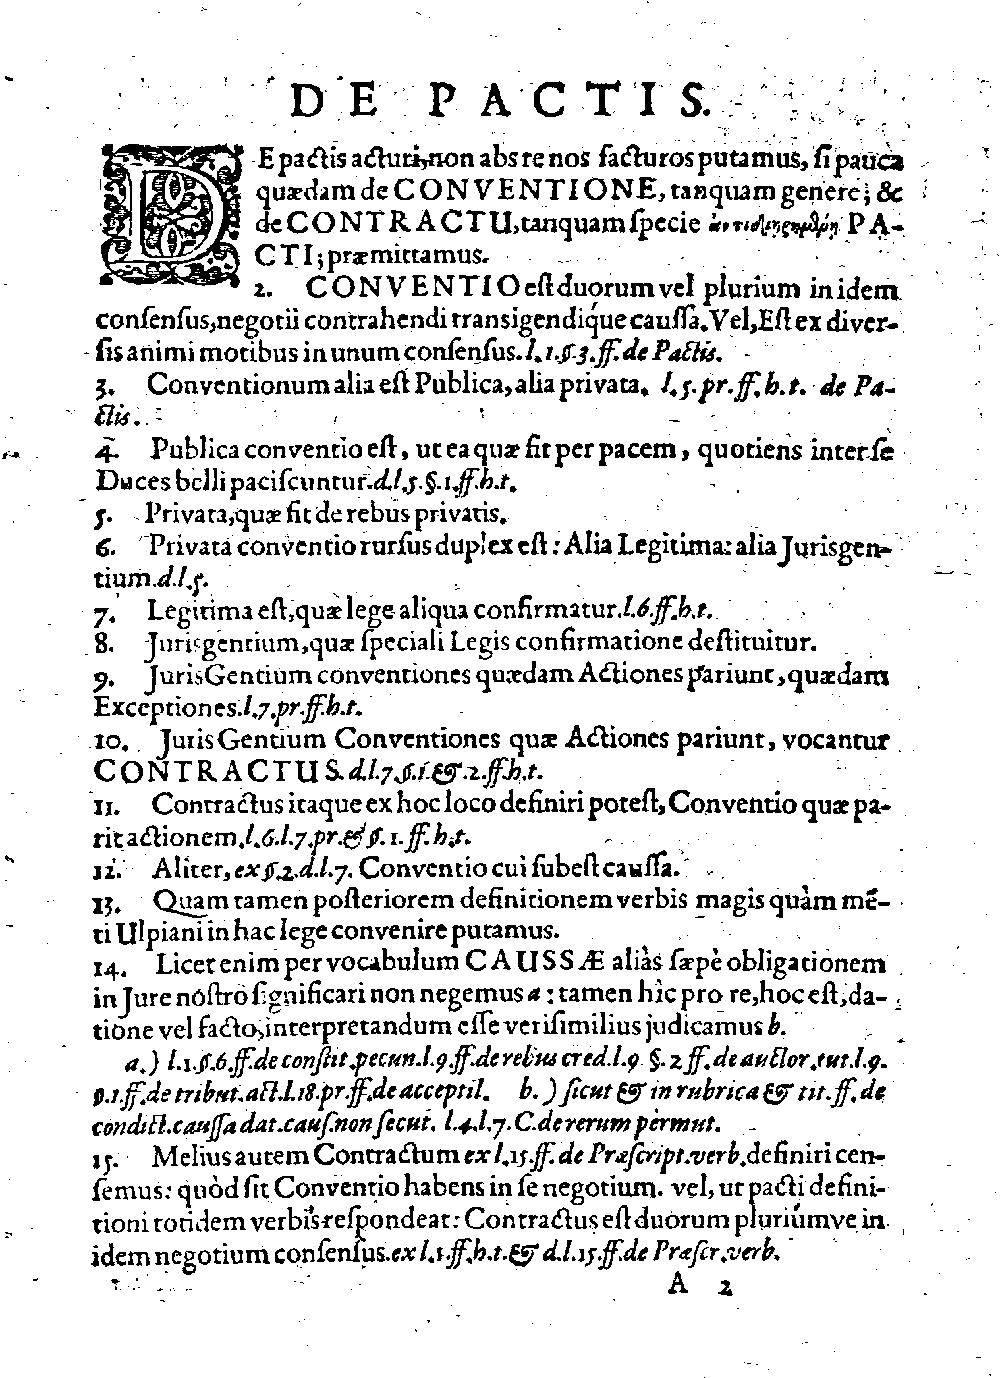 DE PACTIS.
DE pactis acturi, non abs re nos facturos putamus, si pauca
quædam de CONVENTIONE, tanquam genere; &
de CONTRACTU, tanquam specie PA-
CTI; præmittamus.
2. CONVENTIO est duorum vel plurium in idem
consensus, negotii contrahendi transigendique caussa. Vel, Est ex diver-
sis animi motibus in unum consensus. l. 1. §. 3. ff. de Pactis.
3. Conventionum alia est Publica, alia privata. l. 5. pr. ff. h. t. de Pa-
ctis.
4. Publica conventio est, ut ea quæ fit per pacem, quotiens inter se
Duces belli paciscuntur. d. l. 5. §. 1. ff. h. t.
5. Privata, quæ fit de rebus privatis.
6. Privata conventio rursus duplex est: Alia Legitima: alia Jurisgen-
tium. d. l. 5.
7. Legitima est, quæ lege aliqua confirmatur. l. 6. ff. h. t.
8. Jurisgentium, quæ speciali Legis confirmatione destituitur.
9. Juris Gentium conventiones quædam Actiones pariunt, quædam
Exceptiones. l. 7. pr. ff. h. t.
10. Juris Gentium Conventiones quæ Actiones pariunt, vocantur
CONTRACTUS. d. l. 7. §. 1. & .2. ff. h. t.
11. Contractus itaque ex hoc loco definiri potest, Conventio quæ pa-
rit actionem. l. 6. l. 7. pr. & §. 1. ff. h. t.
12. Aliter, ex §. 2. d. l. 7. Conventio cui subest caussa.
13. Quam tamen posteriorem definitionem verbis magis quàm mē-
ti Ulpiani in hac lege convenire putamus.
14. Licet enim per vocabulum CAUSSÆ aliàs sæpè obligationem
in Jure nostro significari non negemus a: tamen hîc pro re, hoc est, da-
tione vel facto, interpretandum esse verisimilius judicamus b.
a.) l. 1. §. 6. ff. de constit. pecun. l. 9. ff. de rebus cred. l. 9. §. 2 ff. de auctor. tut. l. 9.
§. 1. ff. de tribut. act. l. 18. pr. ff. de acceptil. b.) sicut & in rubrica & tit. ff. de
condict. caussa dat. caus. non secut. l. 4. l. 7. C. de rerum permut.
15. Melius autem Contractum ex l. 15. ff. de Præscript. verb. definiri cen-
semus: quòd sit Conventio habens in se negotium. vel, ut pacti defini-
tioni totidem verbis respondeat: Contractus est duorum pluriumve in
idem negotium consensus. ex l. 1. ff. h. t. & d. l. 15. ff. de Præscr. verb.
A 2